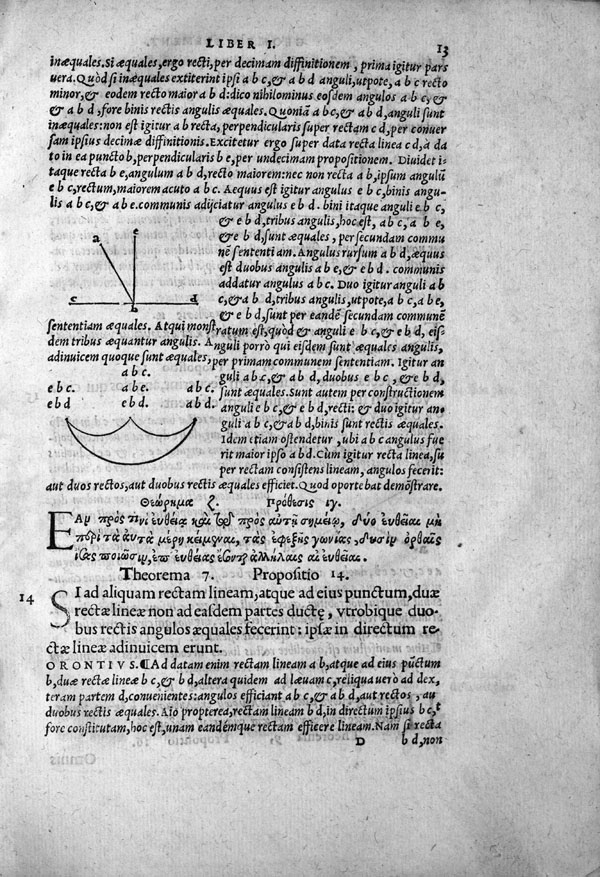 LIBER I.
13
inæquales. Si æquales, ergo recti, per decimam diffinitionem, prima igitur pars
uera. Quòd si inæquales extiterint ipsi a b c, & a b d anguli, utpote, a b c recto
minor, & eodem recto maior a b d: dico nihilominus eosdem angulos a b c, &
& a b d, fore binis rectis angulis æquales. Quoniã a b c, & a b d, anguli sunt
inæquales: non est igitur a b recta, perpendicularis super rectam c d, per conuer
sam ipsius decimæ diffinitionis. Excitetur ergo super data recta linea c d, a da
to in ea puncto b, perpendicularis b e, per undecimam propositionem. Diuidet i-
taque recta b e, angulum a b d, recto maiorem: nec non recta a b, ipsum angulũ
e b c, rectum, maiorem acuto a b c. Aequus est igitur angulus e b c, binis angu-
lis a b c, & a b e. communis adijciatur angulus e b d. bini itaque anguli e b c,
& e b d, tribus angulis, hoc est, a b c, a b e,
& e b d, sunt æquales, per secundam commu
nẽ sententiam. Angulus rursum a b d, æquus
est duobus angulis a b e, & e b d. communis
addatur angulus a b c. Duo igitur anguli a b
c, & a b d, tribus angulis, utpote, a b c, a b e,
& e b d, sunt per eandẽ secundam communẽ
a
e
c
b
d
sententiam æquales. At qui monstratum est, quòd & anguli e b c, & e b d, eis
dem tribus æquantur angulis. Anguli porrò qui eisdem sunt æquales angulis,
adinuicem quoque sunt æquales, per primam communem sententiam. Igitur an
guli a b c, & a b d, duobus e b c, & e b d,
sunt æquales. Sunt autem per constructionem
anguli e b c, & e b d, recti: & duo igitur an-
guli a b c, & a b d, binis sunt rectis æquales.
Idem etiam ostendetur, ubi a b c angulus fue
rit maior ipso a b d. Cum igitur recta linea, su
per rectam consistens lineam, angulos fecerit:
a b c.
e b c. a b e. a b c.
e b d e b d. a b d.
aut duos rectos, aut duobus rectis æquales efficiet. Quod oportebat demõstrare.
Θεώρημα ζ. Πρόθεσις ιγ.
Ἐὰν πρός τινι εὐθείᾳ καὶ τῷ πρὸς αὐτῇ σημείῳ, δύο εὐθεῖαι μὴ
ἐπὶ τὰ αὐτὰ μέρη κείμεναι, τὰς ἐφεξῆς γωνίας, δυσὶν ὀρθαῖς
ἴσας ποιῶσιν, ἐπ' εὐθείας ἔσονται ἀλλήλαις αἱ εὐθεῖαι.
Theorema 7. Propositio 14.
14
SI ad aliquam rectam lineam, atque ad eius punctum, duæ
rectæ lineæ non ad easdem partes ductę, vtrobique duo-
bus rectis angulos æquales fecerint: ipsæ in directum re-
ctæ lineæ adinuicem erunt.
ORONTIVS. ¶Ad datam enim rectam lineam a b, atque ad eius pũctum
b, duæ rectæ lineæ b c, & b d, altera quidem ad læuam c, reliqua uerò ad dex,
teram partem d, conuenientes: angulos efficiant a b c, & a b d, aut rectos, au
duobus rectis æquales. Aio propterea, rectam lineam b d, in directum ipsius b c, t
fore constitutam, hoc est, unam eandémque rectam efficere lineam. Nam si recta
D b d, non